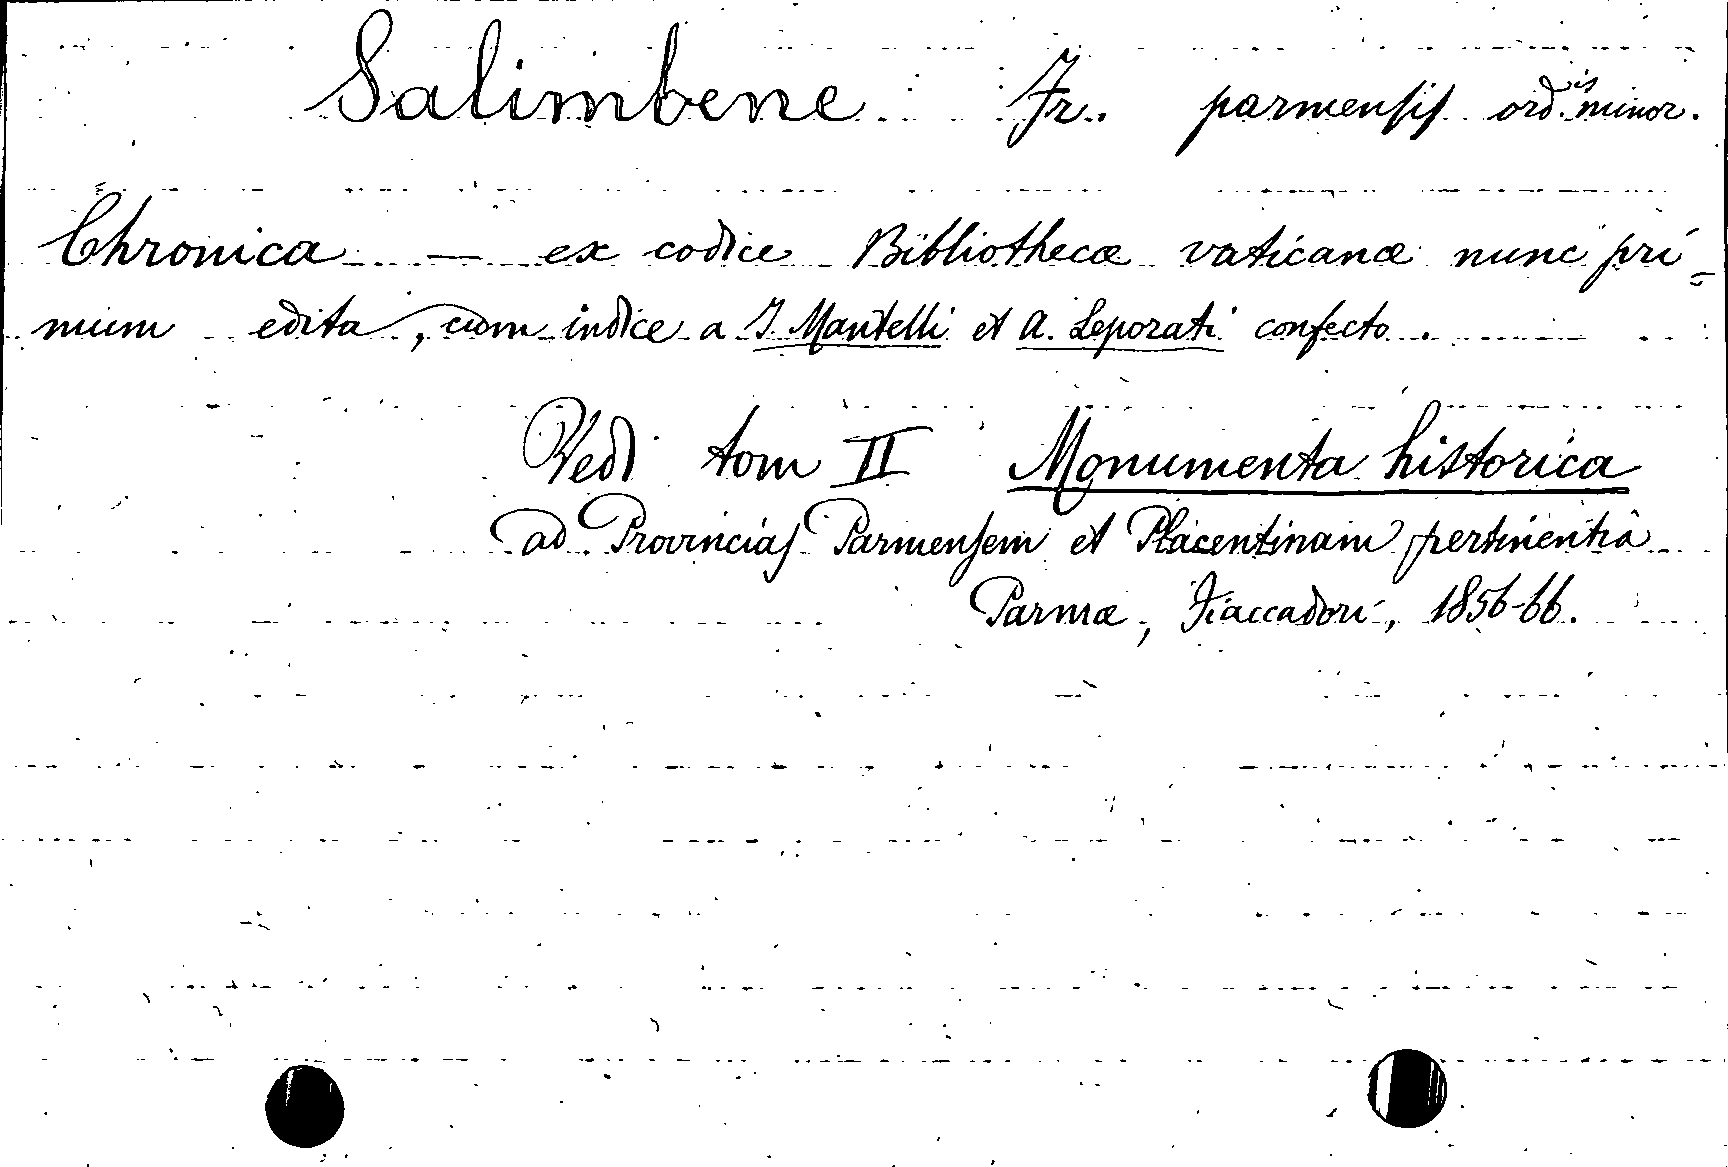 Salimbene Fr. parmensis ord.is minor.
Chronica — ex codice Bibliothecæ vaticanæ nunc pri=
mum edita, cum indice a I. Mantelli et A. Leporati confecto.
Vedi tom II Monumenta historica
ad Provincias Parmensem et Placentinam pertinentia
Parmæ, Fiaccadori, 1856-66.